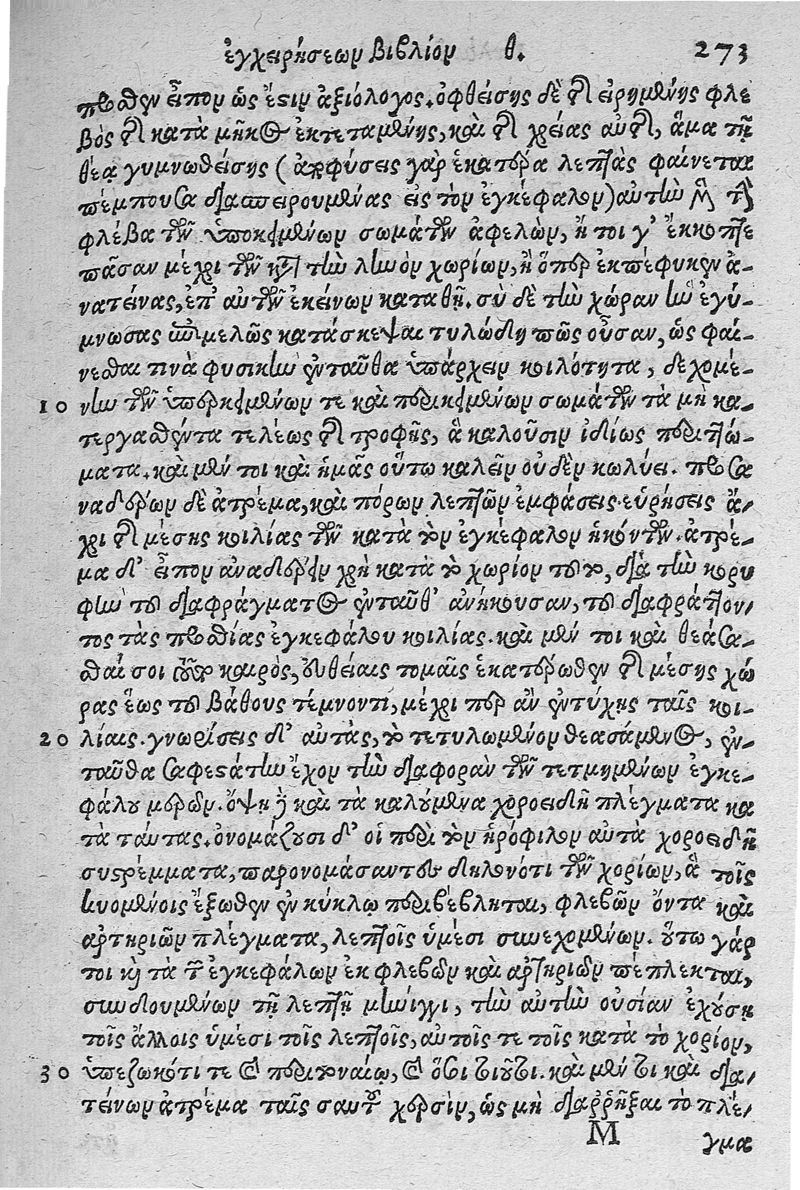 ἐγχειρήσεων βιβλίον θ. 273
πρόσθεν εἶπον ὡς ἔστιν ἀξιόλογος. ὀφθείσης δὲ τῆς εἰρημένης φλε
βὸς τῆς κατὰ μῆκος ἐκτεταμένης, καὶ τῆς χρείας αὐτῆς, ἅμα τῇ
θέᾳ γυμνωθείσης (ἀποφύσεις γὰρ ἑκατέρα λεπτὰς φαίνεται
πέμπουσα διασπειρουμένας εἰς τὸν ἐγκέφαλον) αὐτὴν μὲν τὴν
φλέβα τῶν ὑποκειμένων σωμάτων ἀφελὼν, ἤ τοι γ' ἔκκοπτε
πᾶσαν μέχρι τῶν κατὰ τὴν ληνὸν χωρίων, ἢ ὅπερ ἐκπέφυκεν ἀ-
νατείνας, ἐπ' αὐτῶν ἐκείνων καταθῇ. σὺ δὲ τὴν χώραν ἣν ἐγύ-
μνωσας ἐπιμελῶς κατάσκεψαι τυλώδη πῶς οὖσαν, ὡς φαί-
νεσθαι τινὰ φυσικὴν ἐνταῦθα ὑπάρχειν κοιλότητα, δεχομέ-
10 νην τῶν ὑπερκειμένων τε καὶ περικειμένων σωμάτων τὰ μὴ κα-
τεργασθέντα τελέως τῆς τροφῆς, ἃ καλοῦσιν ἰδίως περιττώ-
ματα. καὶ μέν τοι καὶ ἡμᾶς οὕτω καλεῖν οὐδὲν κωλύει.
ναδέρων δὲ ἀτρέμα, καὶ πόρων λεπτῶν ἐμφάσεις εὑρήσεις ἄ-
χρι τῆς μέσης κοιλίας τῶν κατὰ τὸν ἐγκέφαλον ἡκόντων. ἀτρέ-
μα δ' εἶπον ἀναδέρειν χρὴ κατὰ τὸ χωρίον τοῦτο, διὰ τὴν κορυ
φὴν τοῦ διαφράγματος ἐνταῦθ' ἀνήκουσαν, τοῦ διαφράττον-
τος τὰς προσθίας ἐγκεφάλου κοιλίας. καὶ μέν τοι καὶ θεάσα-
σθαί σοι καιρὸς, εὐθείαις τομαῖς ἑκατέρωθεν τῆς μέσης χώ
ρας ἕως τοῦ βάθους τέμνοντι, μέχρι περ ἂν ἐντύχῃς ταῖς κοι-
20 λίαις. γνωρίσεις δ' αὐτὰς, τὸ τετυλωμένον θεασάμενος, ἐν-
ταῦθα σαφεστάτην ἔχον τὴν διαφορὰν τῶν τετμημένων ἐγκε-
φάλου μερῶν. ὄψῃ δὲ καὶ τὰ καλούμενα χοροειδῆ πλέγματα κα
τὰ ταύτας. ὀνομάζουσι δ' οἱ περὶ τὸν ἡρόφιλον αὐτὰ χοροειδῆ
συστρέμματα, παρονομάσαντες δηλονότι τῶν χορίων, ἃ τοῖς
κυομένοις ἔξωθεν ἐν κύκλῳ περιβέβληται, φλεβῶν ὄντα καὶ
ἀρτηριῶν πλέγματα, λεπτοῖς ὑμέσι συνεχομένων. οὕτω γάρ
τοι καὶ τὰ τῶν ἐγκεφάλων ἐκ φλεβῶν καὶ ἀρτηριῶν πέπλεκται,
συνδουμένων τῇ λεπτῇ μήνιγγι, τὴν αὐτὴν οὐσίαν ἐχούσῃ
τοῖς ἄλλοις ὑμέσι τοῖς λεπτοῖς, αὐτοῖς τε τοῖς κατὰ τὸ χορίον,
30 ὑπεζωκότι τε καὶ περιτοναίῳ, καὶ καὶ μέν τοι καὶ δια-
τείνων ἀτρέμα ταῖς σαυτοῦ χερσὶν, ὡς μὴ διαῤῥῆξαι τὸ πλέ-
M γμα